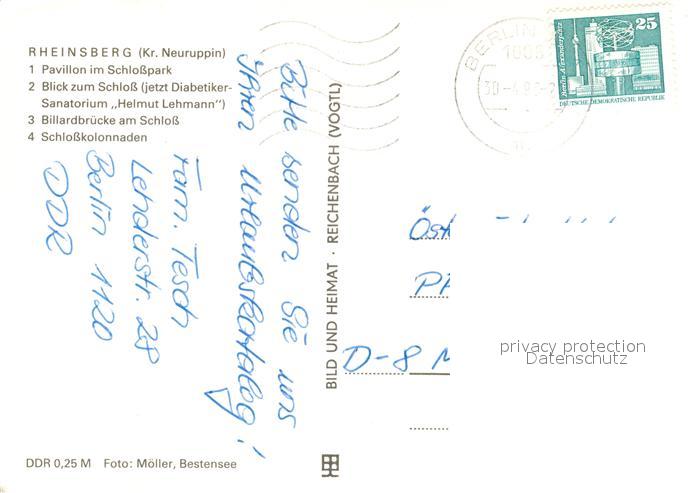 RHEINSBERG (Kr. Neuruppin)
1 Pavillon im Schloßpark
2 Blick zum Schloß (jetzt Diabetiker-
Sanatorium „Helmut Lehmann")
3 Billardbrücke am Schloß
4 Schloßkolonnaden
Bitte senden Sie uns
Ihren Urlaubskatalog!
Fam. Tesch
Lehderstr. 28
Berlin 1120
DDR
BILD UND HEIMAT · REICHENBACH (VOGTL)
BERLIN
25
Berlin, Alexanderplatz
DEUTSCHE DEMOKRATISCHE REPUBLIK
Öst
D-8 M
privacy protection
Datenschutz
DDR 0,25 M Foto: Möller, Bestensee